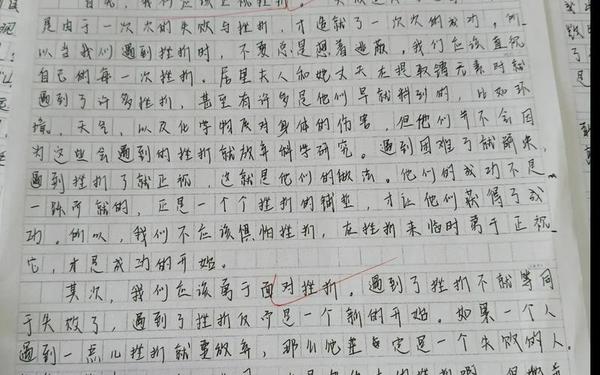 首先，我们应该正视挫折。失败
是由于一次次的失败与挫折，才造就了一次次的成功，所
以当我们遇到挫折时，不要总是想着逃蔽，我们应该直视
自己的每一次挫折。居里夫人和她丈夫在提取镭元素时就
遇到了许多挫折，甚至有许多是他们早就料到的，比如环
境、天气，以及化学物质对身体的伤害，但他们并不会因
为这些会遇到的挫折就放弃科学研究。遇到困难了就解决，
遇到挫折了就正视，这就是他们的做法。他们的成功不是
一蹴而就的，正是一个个挫折的铺垫，才让他们获得了成
功。所以，我们不应该惧怕挫折，在挫折来临时勇于正视
它，才是成功的开始。
其次，我们应该勇于面对挫折。遇到了挫折不就等同
于失败了，遇到了挫折反而是一个新的开始。如果一个人
遇到一点儿挫折就要放弃，那么他注定是一个失败的人。